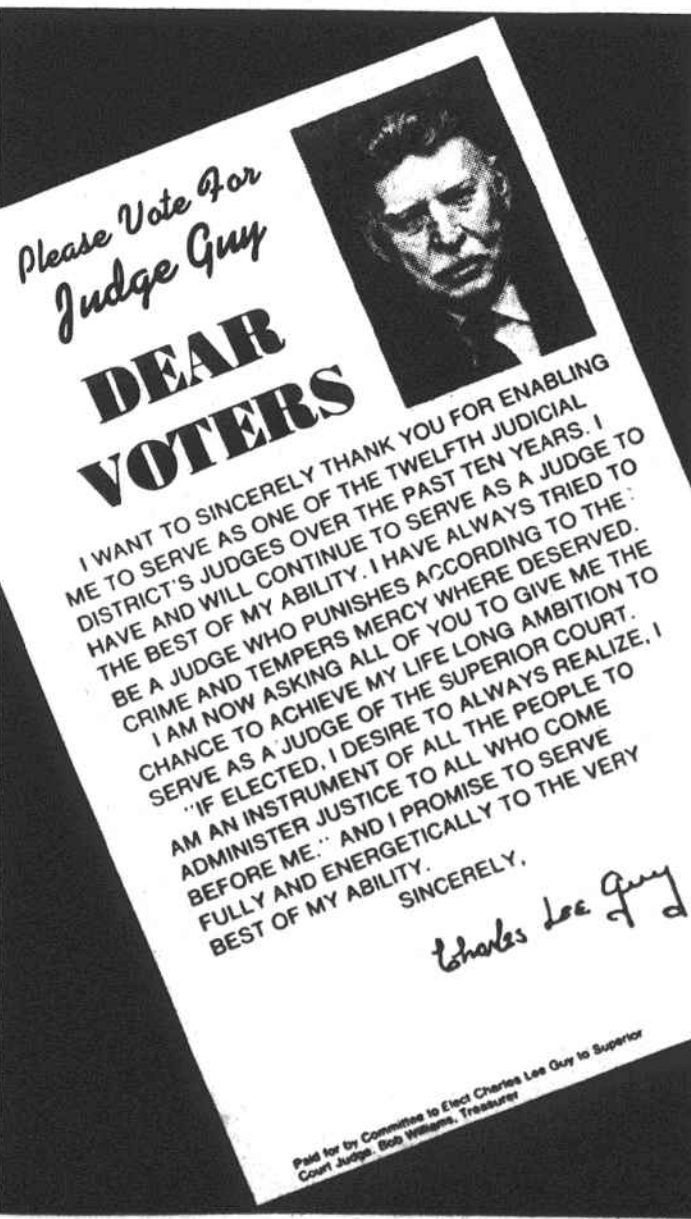 Please Vote For
Judge Guy
DEAR
VOTERS
I WANT TO SINCERELY THANK YOU FOR ENABLING
ME TO SERVE AS ONE OF THE TWELFTH JUDICIAL
DISTRICT'S JUDGES OVER THE PAST TEN YEARS. I
HAVE AND WILL CONTINUE TO SERVE AS A JUDGE TO
THE BEST OF MY ABILITY. I HAVE ALWAYS TRIED TO
BE A JUDGE WHO PUNISHES ACCORDING TO THE
CRIME AND TEMPERS MERCY WHERE DESERVED.
I AM NOW ASKING ALL OF YOU TO GIVE ME THE
CHANCE TO ACHIEVE MY LIFE LONG AMBITION TO
SERVE AS A JUDGE OF THE SUPERIOR COURT.
"IF ELECTED, I DESIRE TO ALWAYS REALIZE, I
AM AN INSTRUMENT OF ALL THE PEOPLE TO
ADMINISTER JUSTICE TO ALL WHO COME
BEFORE ME." AND I PROMISE TO SERVE
FULLY AND ENERGETICALLY TO THE VERY
BEST OF MY ABILITY.
SINCERELY,
Charles Lee Guy
Paid for by Committee to Elect Charles Lee Guy to Superior
Court Judge, Bob Williams, Treasurer